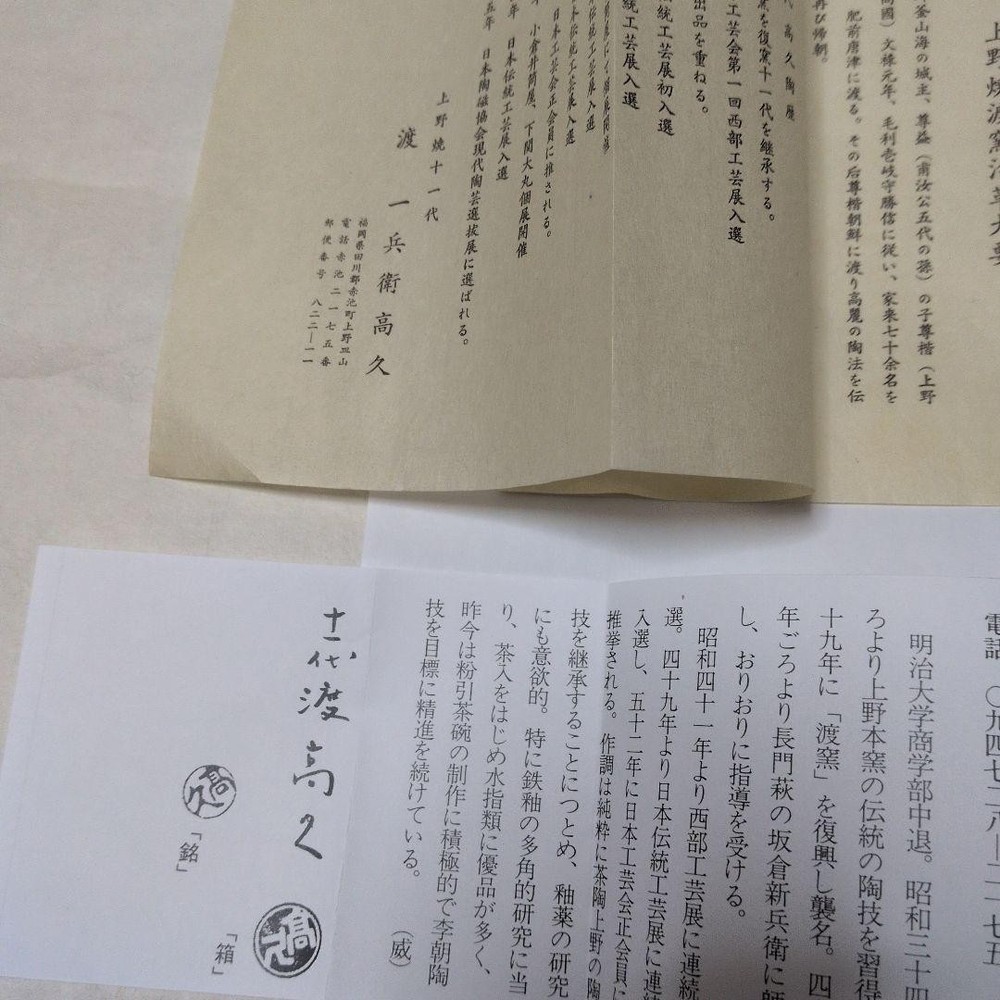 上野焼源窯渡
釜山海の城主、尊益（甫汝公五代の孫）の子尊楷（上野
高國）文禄元年、毛利壱岐守勝信に従い、家来七十余名を
肥前唐津に渡る。その后尊楷朝鮮に渡り高麗の陶法を伝
再び帰朝。
代 高久陶歴
窯を復窯十一代を継承する。
工芸会第一回西部工芸展入選
出品を重ねる。
統工芸展初入選
統工芸展入選
伝統工芸展入選
本伝統工芸展入選
日本工芸会正会員に推される。
小倉井筒屋、下関大丸個展開催
年 日本伝統工芸展入選
五年 日本陶磁協会現代陶芸選抜展に選ばれる。
上野焼十一代
渡 一兵衛高久
福岡県田川郡赤池町上野皿山
電話赤池二一七五番
郵便番号 八二二―一一
電話 〇九四七二八―二一七五
明治大学商学部中退。昭和三十四
ろより上野本窯の伝統の陶技を習得
十九年に「渡窯」を復興し襲名。四
年ごろより長門萩の坂倉新兵衛に師
し、おりおりに指導を受ける。
昭和四十一年より西部工芸展に連続
選。四十九年より日本伝統工芸展に連続
入選し、五十二年に日本工芸会正会員に
推挙される。作調は純粋に茶陶上野の陶
技を継承することにつとめ、釉薬の研究
にも意欲的。特に鉄釉の多角的研究に当
り、茶入をはじめ水指類に優品が多く、
昨今は粉引茶碗の制作に積極的で李朝陶
技を目標に精進を続けている。
（威）
十一代渡高久
高久
「銘」
高久
「箱」